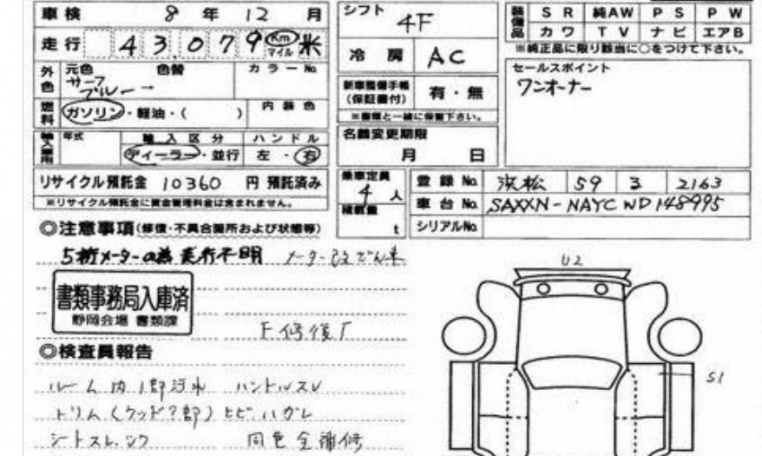 車検 8年 12月
走行 43,079 Km マイル 米
外色 元色 サーフブルー 色替 カラーNo.
燃料 ガソリン・軽油・( ) 内装色
輸入車用 年式 輸入区分 ハンドル
ディーラー・並行 左・右
リサイクル預託金 10360 円預託済み
※リサイクル預託金に資金管理料金は含まれません。
シフト 4F
冷房 AC
新車整備手帳(保証書付) 有・無
※書類と一緒に保管下さい。
名義変更期限
月 日
装備品 SR 純AW PS PW
カワ TV ナビ エアB
※純正品に限り該当に○をつけて下さい。
セールスポイント
ワンオーナー
乗車定員 4人
積載量 t
登録No. 浜松 59 3 2163
車台No. SAXXN-NAYCWD148995
シリアルNo.
◎注意事項(修復・不具合箇所および状態等)
5桁メーターの為走行不明
書類事務局入庫済
静岡会場 書類課
F修復
◎検査員報告
ルーム内 ハンドルスレ
トリム(ウッド
シートスレ
同色全補修
U2
S1